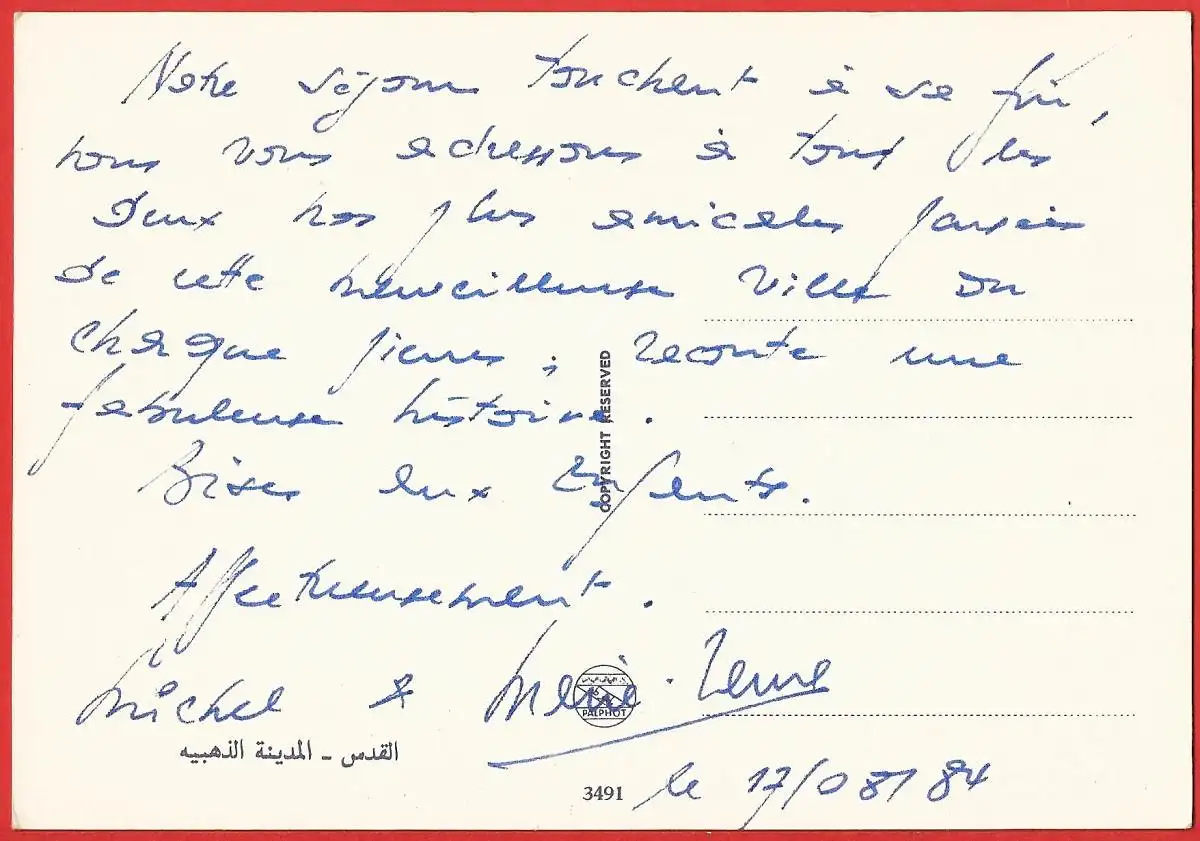 Notre séjour touchent à sa fin,
nous vous adressons à tous les
deux nos plus amicales pensées
de cette merveilleuse ville ou
chaque pierres, raconte une
fabuleuse histoire.
Bises aux enfants.
Affectueusement.
Michel & Marie-
le 17/08/84
القدس - المدينة الذهبيه
3491
COPYRIGHT RESERVED
PALPHOT